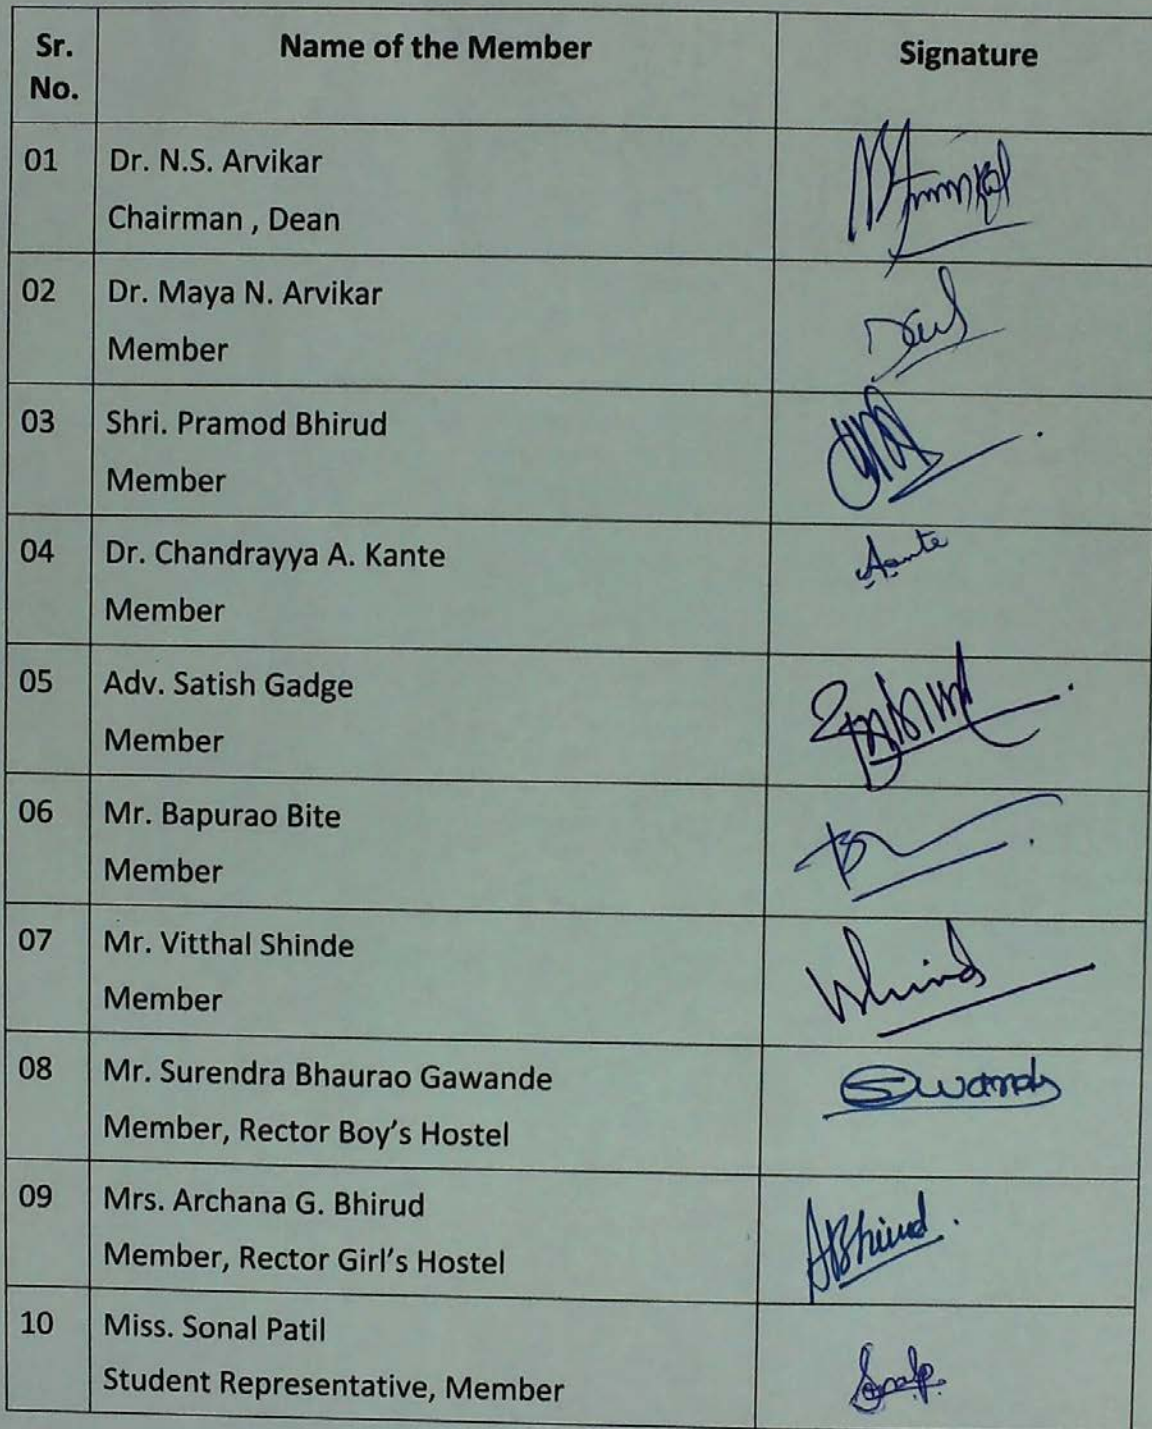 Sr. No. Name of the Member Signature
01 Dr. N.S. Arvikar
Chairman , Dean
02 Dr. Maya N. Arvikar
Member
03 Shri. Pramod Bhirud
Member
04 Dr. Chandrayya A. Kante Kante
Member
05 Adv. Satish Gadge
Member
06 Mr. Bapurao Bite
Member
07 Mr. Vitthal Shinde
Member
08 Mr. Surendra Bhaurao Gawande
Member, Rector Boy’s Hostel
09 Mrs. Archana G. Bhirud ABhirud.
Member, Rector Girl’s Hostel
10 Miss. Sonal Patil
Student Representative, Member